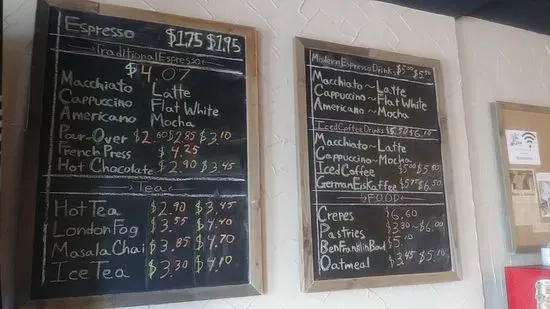 Espresso $1.75 $1.95
Traditional Espresso
$4.07
Macchiato Latte
Cappuccino Flat White
Americano Mocha
Pour-Over $2.60 $2.85 $3.10
French Press $4.25
Hot Chocolate $2.90 $3.45
Tea
Hot Tea $2.90 $3.45
London Fog $3.55 $4.40
Masala Chai $3.85 $4.70
Ice Tea $3.30 $4.10
Modern Espresso Drinks $5.00 $5.90
Macchiato~Latte
Cappuccino~Flat White
Americano~Mocha
Iced Coffee Drinks $5.30 $6.10
Macchiato~Latte
Cappuccino~Mocha
Iced Coffee $5.00 $5.90
German Eiskaffee $5.95 $6.50
FOOD
Crepes $6.60
Pastries $3.30~$6.00
Ben Franklin Bowl $5.10
Oatmeal $3.45 $5.10